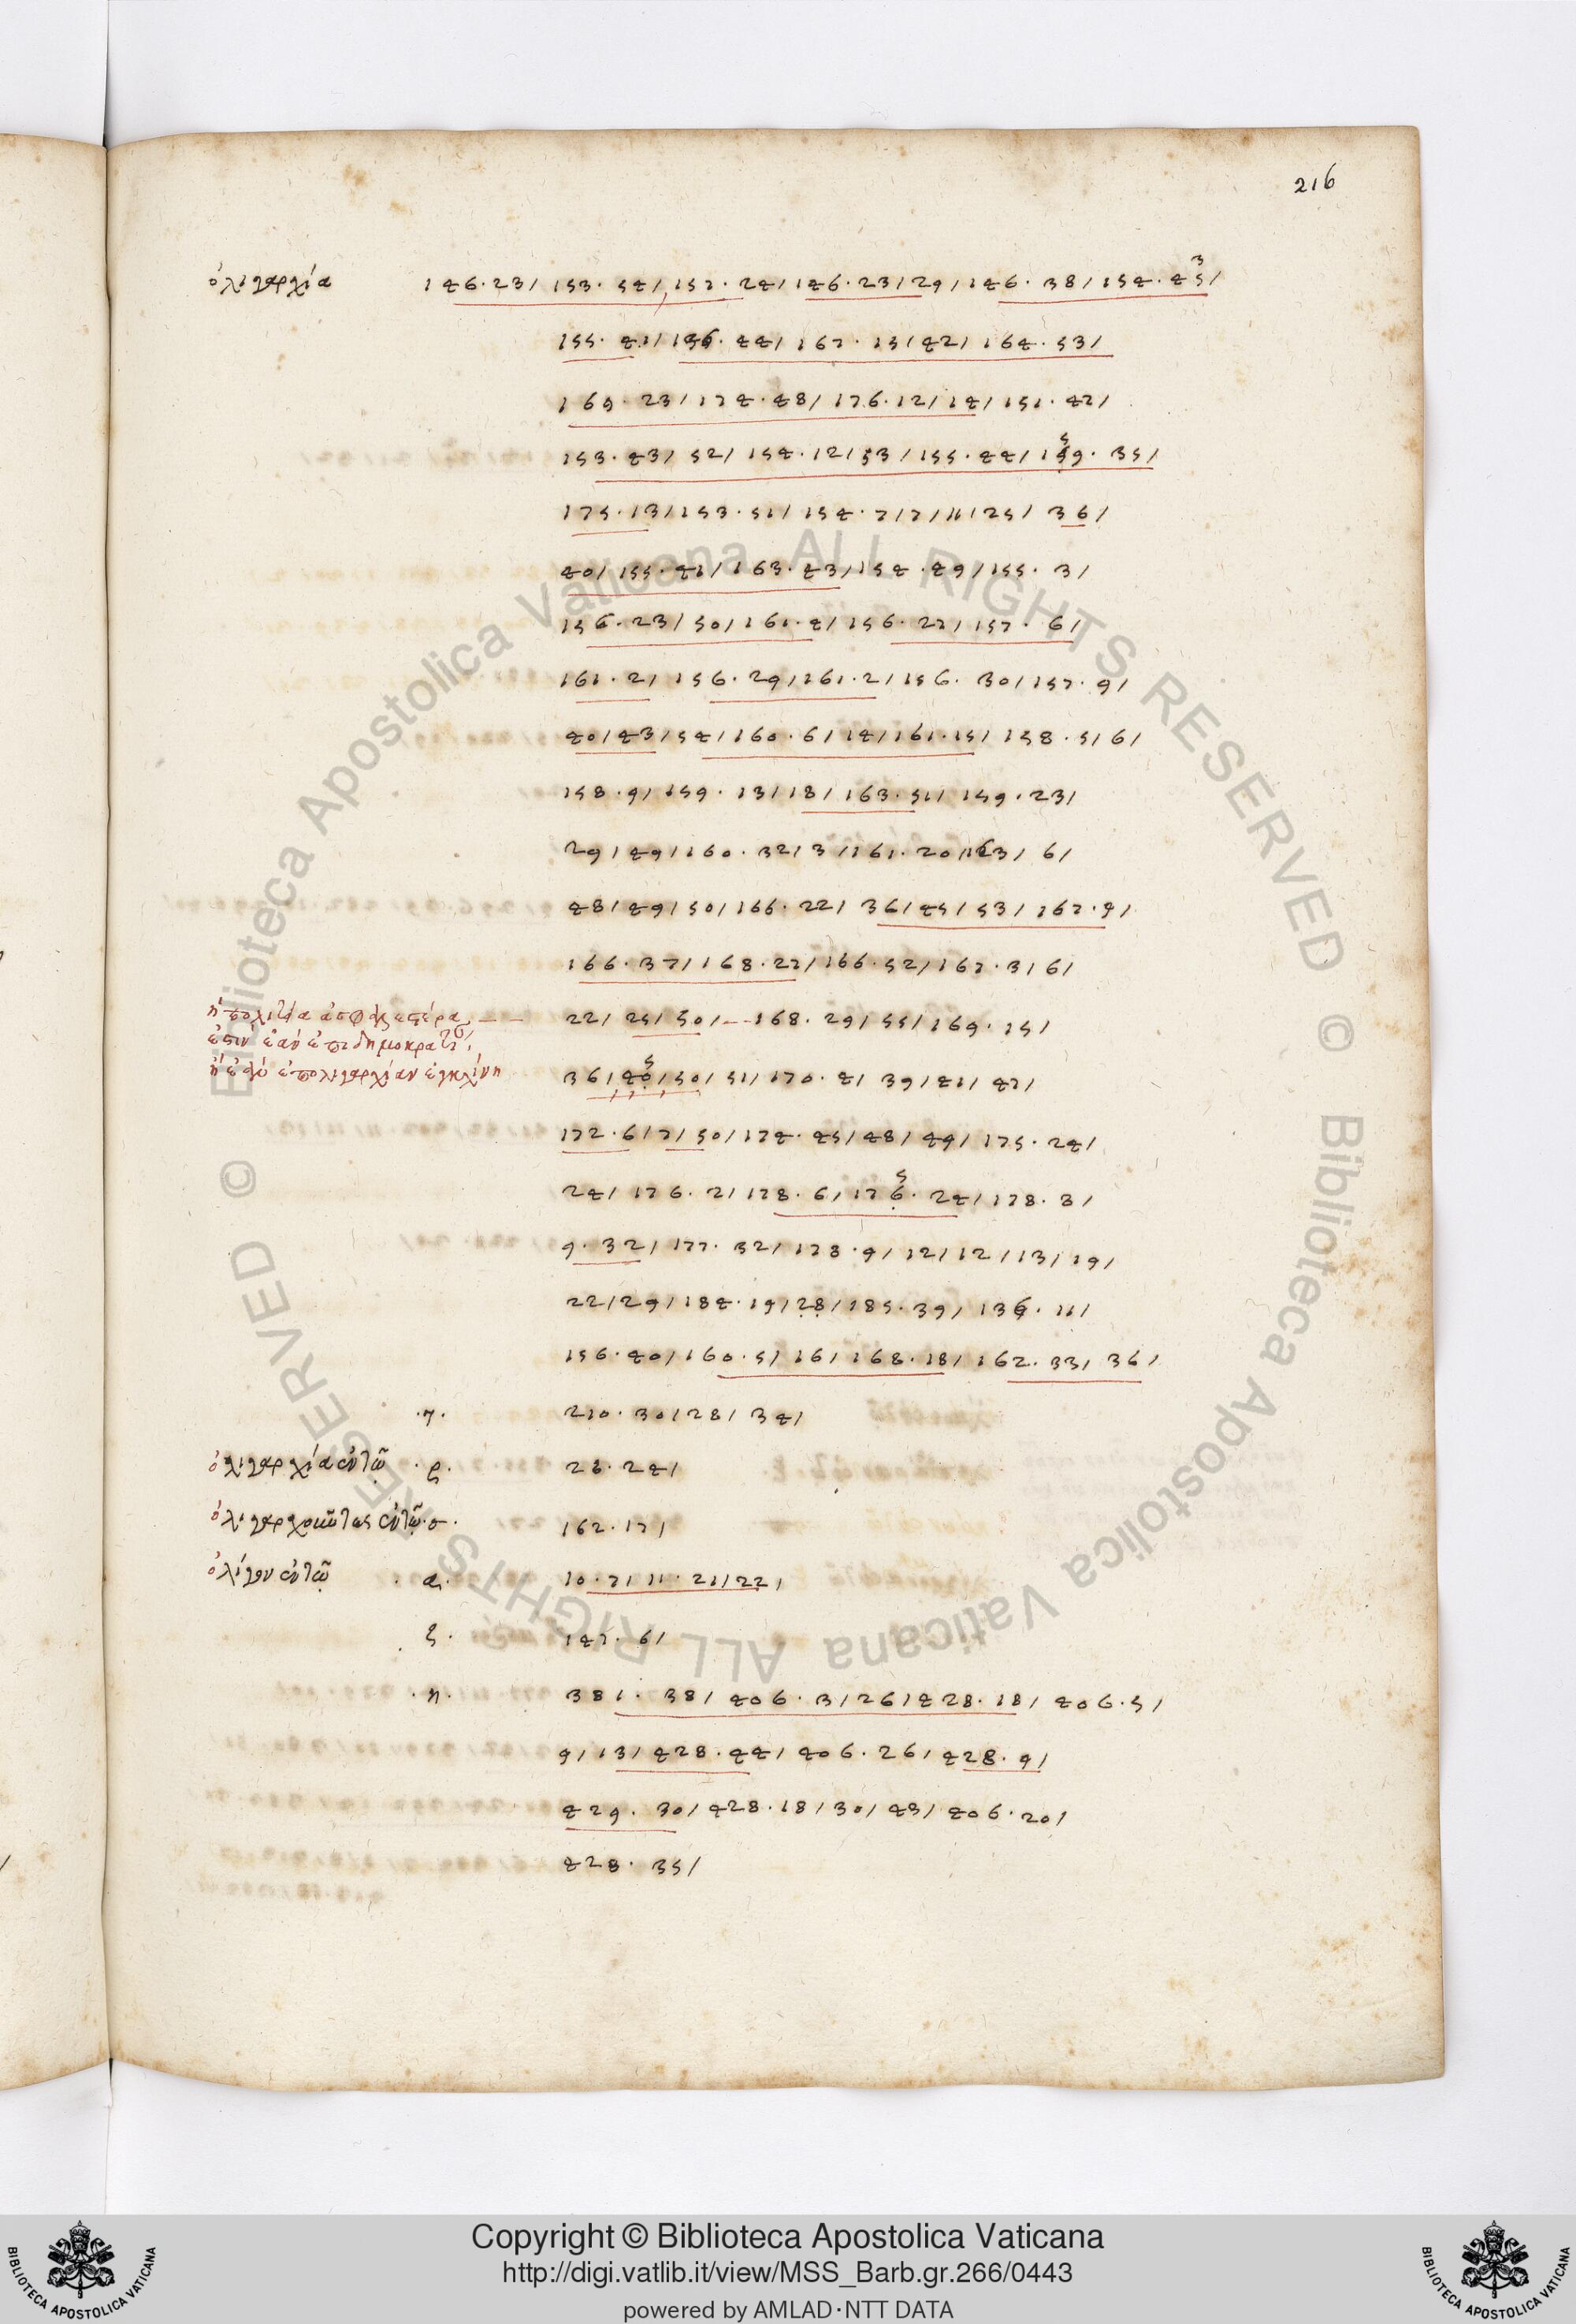 216
ὀλιγαρχία 146.23/ 153.54/ 157.24/ 146.23/29/ 146.38/ 154.45/
3
155.41/ 156.44/ 167.15/42/ 164.53/
169.23/ 174.48/ 176.12/14/ 151.42/
153.43/52/ 154.12/53/ 155.44/ 159.35/
5
175.13/ 153.51/ 154.7/7/11/25/36/
40/ 155.41/ 163.43/ 154.49/ 155.3/
156.23/50/ 161.4/ 156.27/ 157.6/
161.2/ 156.29/ 161.2/ 156.30/ 157.9/
40/43/54/ 160.6/14/ 161.15/ 158.5/6/
158.9/ 159.13/18/ 163.51/ 159.23/
29/49/ 160.32/3/ 161.20/ 163/6/
48/49/50/ 166.22/36/45/53/ 167.9/
166.37/ 168.27/ 166.52/ 167.3/6/
22/25/50/ 168.29/55/ 169.15/
36/40/50/51/ 170.4/39/41/47/
5
172.6/7/50/ 174.45/48/49/ 175.24/
24/ 176.2/ 178.6/ 176.24/ 178.3/
5
9.32/ 177.32/ 178.9/12/12/13/19/
22/29/ 184.19/28/ 185.39/ 136.11/
156.40/ 160.5/16/ 168.18/ 162.33/36/
.γ. 210.30/28/34/
ὀλιγαρχία ἐν τῷ .ρ. 26.24/
ἐν τῷ .σ. 162.17/
ὀλίγον ἐν τῷ .α. 10.7/ 11.21/22/
ζ. 147.6/
.η. 381.38/ 406.3/26/ 428.18/ 406.5/
9/13/ 428.44/ 406.26/ 428.9/
429.30/ 428.18/30/43/ 406.20/
428.35/
Copyright © Biblioteca Apostolica Vaticana
http://digi.vatlib.it/view/MSS_Barb.gr.266/0443
powered by AMLAD·NTT DATA
BIBLIOTECA APOSTOLICA VATICANA
BIBLIOTECA APOSTOLICA VATICANA
© Biblioteca Apostolica Vaticana ALL RIGHTS RESERVED
© Biblioteca Apostolica Vaticana ALL RIGHTS RESERVED